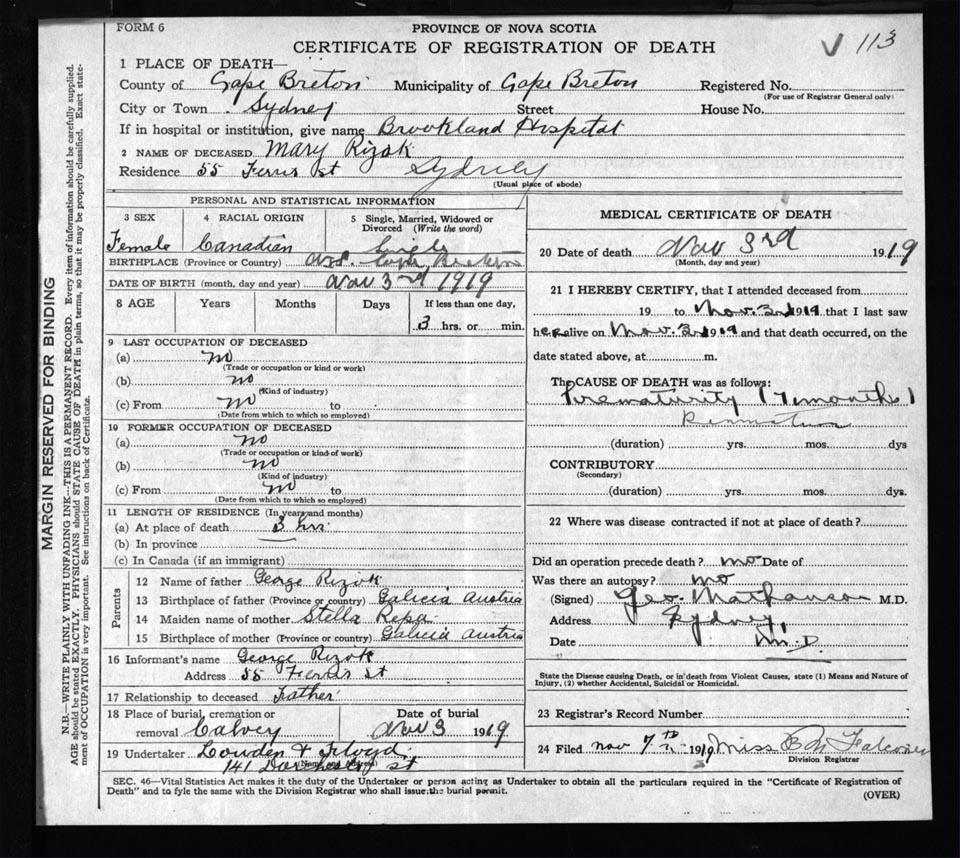 FORM 6
PROVINCE OF NOVA SCOTIA
CERTIFICATE OF REGISTRATION OF DEATH
V 113
1 PLACE OF DEATH—
County of Cape Breton Municipality of Cape Breton Registered No.
(For use of Registrar General only)
City or Town Sydney Street House No.
If in hospital or institution, give name Brookland Hospital
2 NAME OF DECEASED Mary Rizok
Residence 55 Ferris St Sydney
(Usual place of abode)
PERSONAL AND STATISTICAL INFORMATION
3 SEX 4 RACIAL ORIGIN 5 Single, Married, Widowed or Divorced (Write the word)
Female Canadian Single
BIRTHPLACE (Province or Country) Cape Breton
DATE OF BIRTH (month, day and year) Nov 3rd 1919
8 AGE Years Months Days If less than one day,
3 hrs. or min.
9 LAST OCCUPATION OF DECEASED
(a) no
(Trade or occupation or kind or work)
(b) no
(Kind of industry)
(c) From no to
(Date from which to which so employed)
10 FORMER OCCUPATION OF DECEASED
(a) no
(Trade or occupation or kind of work)
(b) no
(Kind of industry)
(c) From no to
(Date from which to which so employed)
11 LENGTH OF RESIDENCE (In years and months)
(a) At place of death 3 hrs.
(b) In province
(c) In Canada (if an immigrant)
Parents
12 Name of father George Rizok
13 Birthplace of father (Province or country) Galicia Austria
14 Maiden name of mother Stella Repa
15 Birthplace of mother (Province or country) Galicia Austria
16 Informant's name George Rizok
Address 55 Ferris St
17 Relationship to deceased Father
18 Place of burial, cremation or removal Calvery Date of burial Nov 3 1919
19 Undertaker Lowden & Floyd
141 Dorchester St
MEDICAL CERTIFICATE OF DEATH
20 Date of death Nov 3rd 1919
(Month, day and year)
21 I HEREBY CERTIFY, that I attended deceased from
19 to Nov. 3rd 1919 that I last saw
her alive on Nov. 3rd 1919 and that death occurred, on the
date stated above, at m.
The CAUSE OF DEATH was as follows:
Prematurity (7 months)
(duration) yrs. mos. dys
CONTRIBUTORY
(Secondary)
(duration) yrs. mos. dys.
22 Where was disease contracted if not at place of death?
Did an operation precede death? no Date of
Was there an autopsy? no
(Signed) Geo. Mathanson M.D.
Address Sydney,
Date M.D.
State the Disease causing Death, or in death from Violent Causes, state (1) Means and Nature of
Injury, (2) whether Accidental, Suicidal or Homicidal.
23 Registrar's Record Number
24 Filed Nov 7th 1919 Miss Falconer
Division Registrar
SEC. 46—Vital Statistics Act makes it the duty of the Undertaker or person acting as Undertaker to obtain all the particulars required in the "Certificate of Registration of
Death" and to fyle the same with the Division Registrar who shall issue the burial permit.
(OVER)
MARGIN RESERVED FOR BINDING
N.B.—WRITE PLAINLY WITH UNFADING INK—THIS IS A PERMANENT RECORD. Every item of information should be carefully supplied.
AGE should be stated EXACTLY. PHYSICIANS should STATE CAUSE OF DEATH in plain terms, so that it may be properly classified. Exact state-
ment of OCCUPATION is very important. See instructions on back of Certificate.